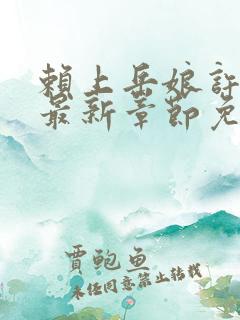 赖上岳娘許
最新章節免
贾鲍鱼
未任同意禁止转载